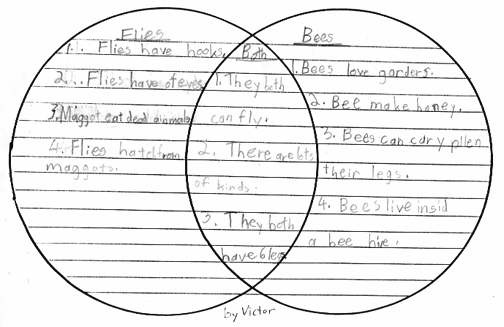 Flies
Both
Bees
1. Flies have hooks.
2. Flies have of eyes
3. Maggot eat dead animals
4. Flies hatch from
maggots.
1. They both
can fly.
2. There are lots
of kinds.
3. They both
have 6 legs
1. Bees love gorders.
2. Bee make honey.
3. Bees can cary pllen
their legs.
4. Bees live insid
a bee hive.
by Victor